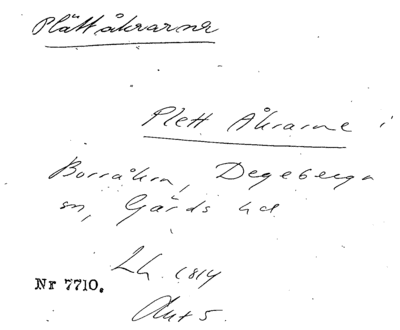 Plättåkrarna
Plett Åkrarne i
Borråkra, Degeberga
sn, Gärds hd
Lh. 1814
Nr 7710.
Akt 5.